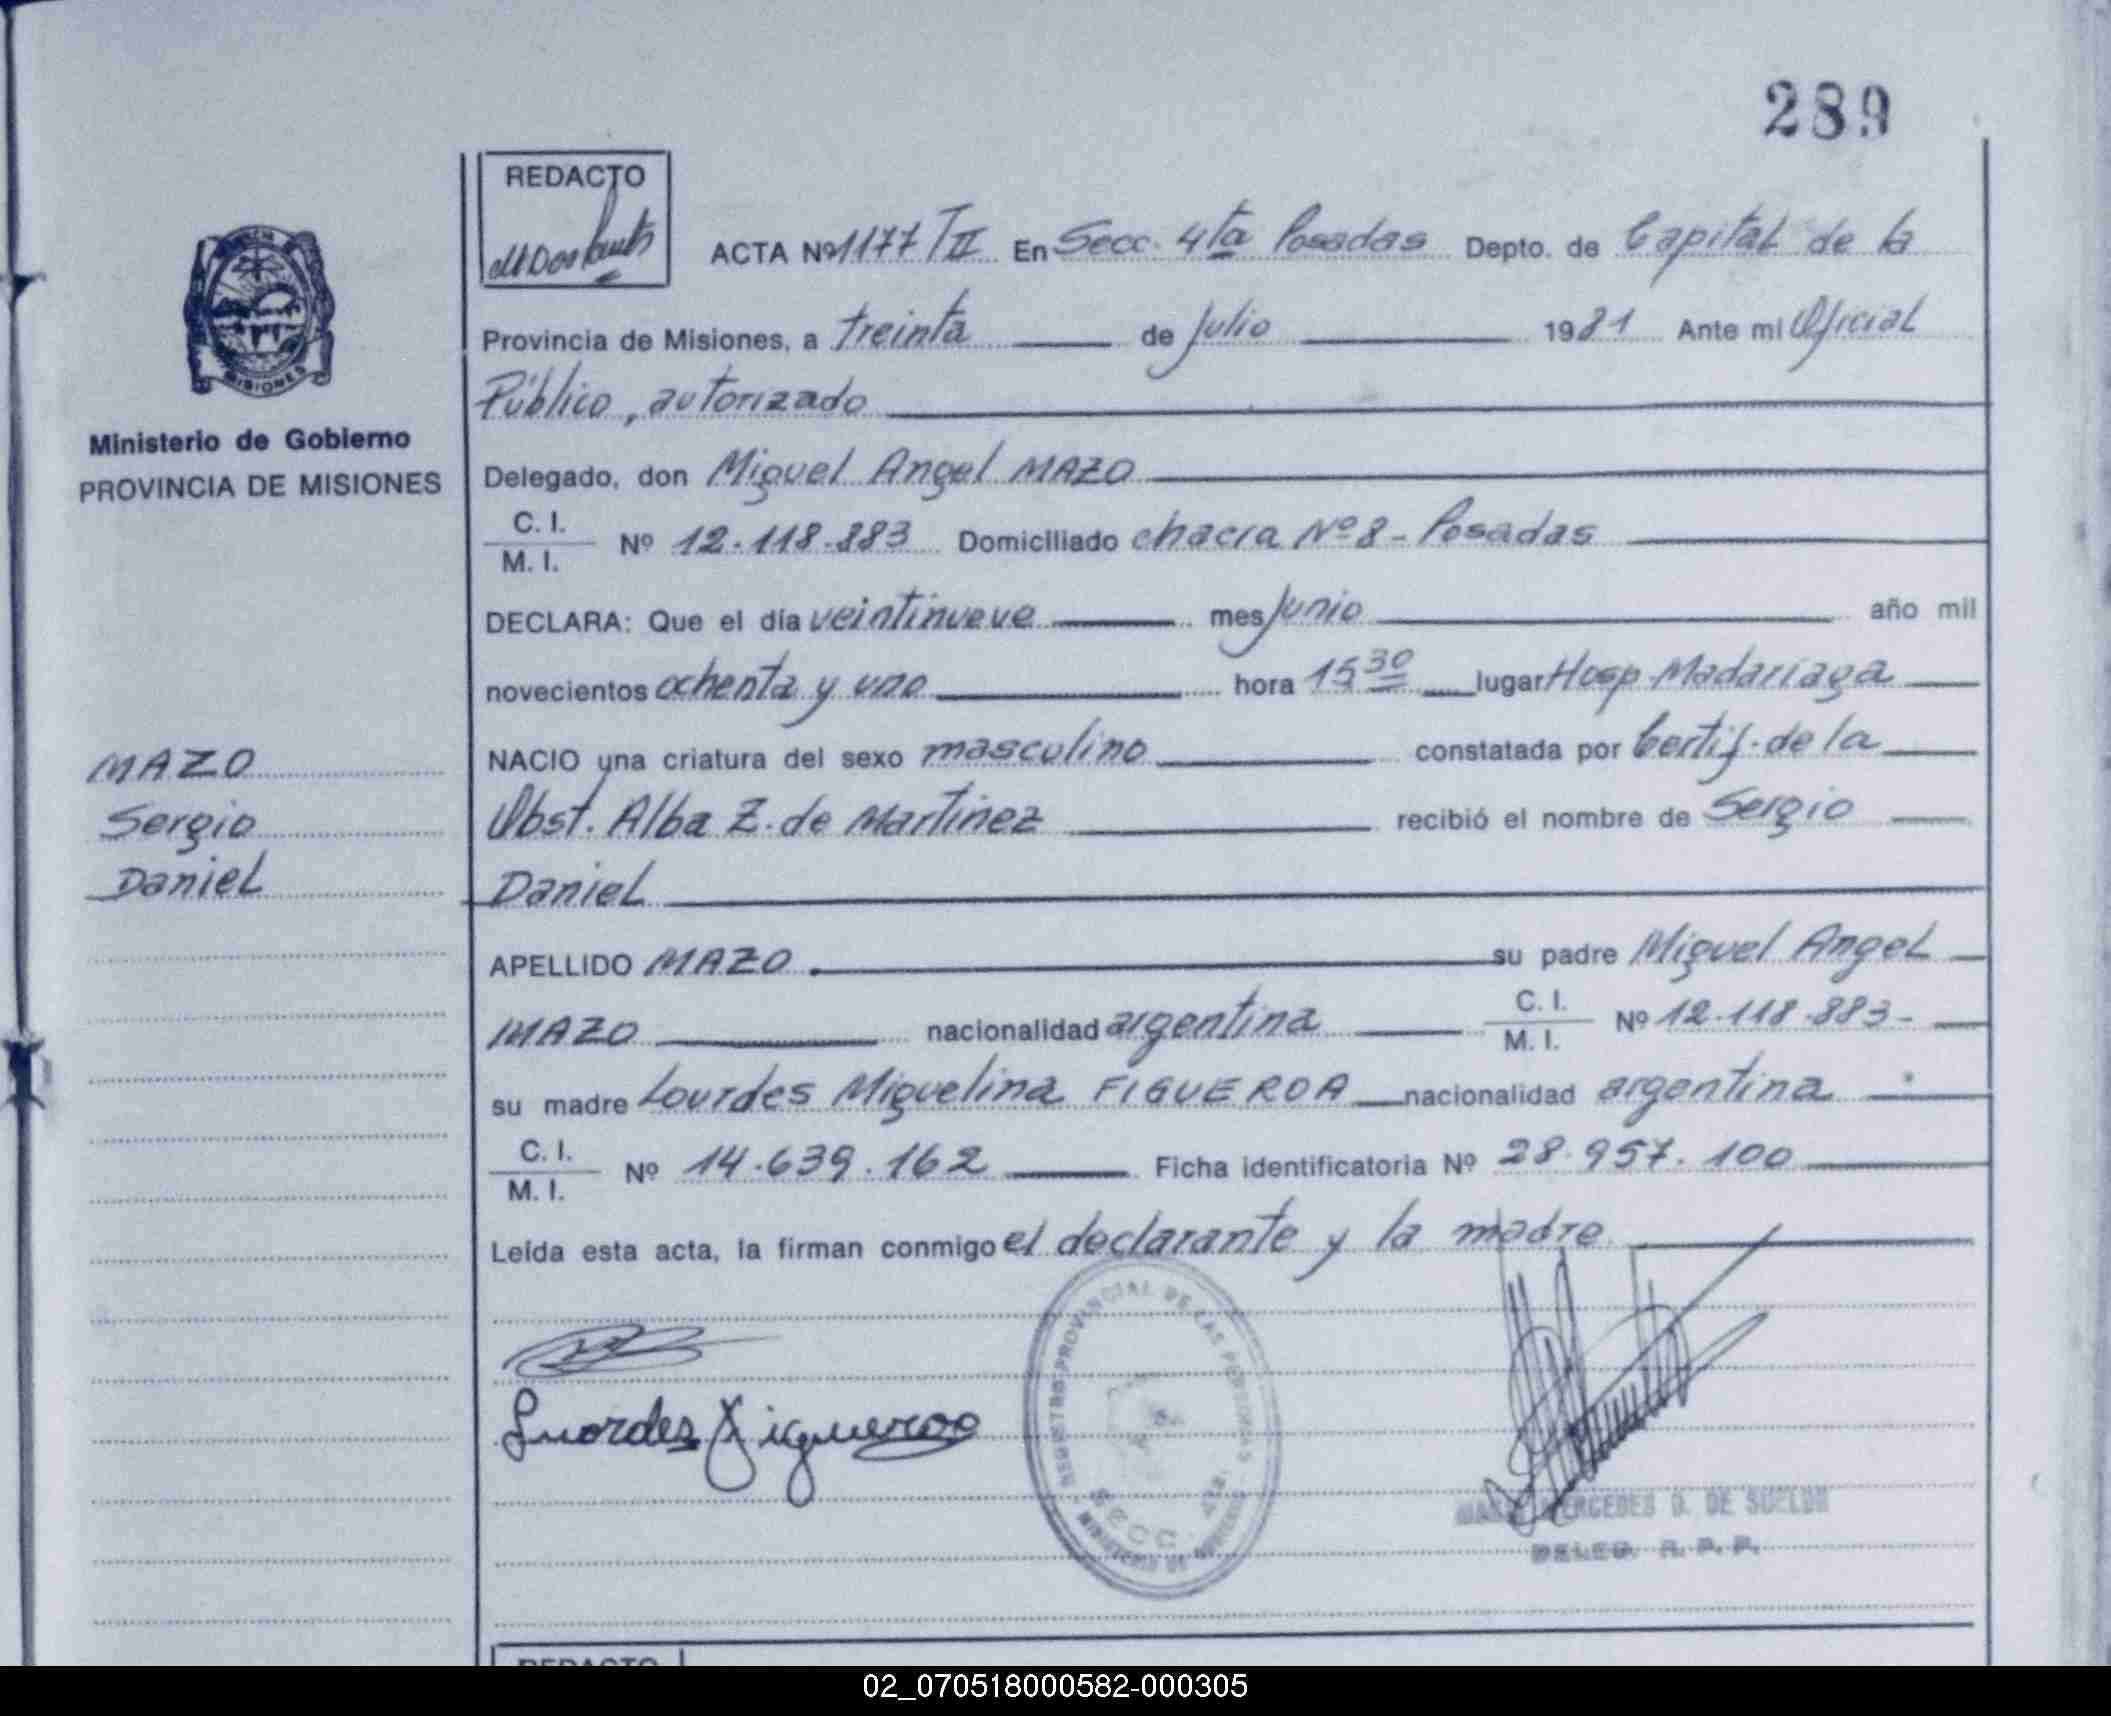 289
REDACTO
ACTA Nº 1177/TII En Secc. 4ta Posadas Depto. de Capital de la
Provincia de Misiones, a treinta de julio 1981 Ante mi Oficial
Público, autorizado
Ministerio de Gobierno
PROVINCIA DE MISIONES
MISIONES
Delegado, don Miguel Angel MAZO
C. I.
M. I.
Nº 12.118.883 Domiciliado chacra Nº 8 - Posadas
DECLARA: Que el día veintinueve mes junio año mil
novecientos ochenta y uno hora 15 30 lugar Hosp Madariaga
MAZO
Sergio
Daniel
NACIO una criatura del sexo masculino constatada por Certif. de la
Obst. Alba Z. de Martinez recibió el nombre de Sergio
Daniel
APELLIDO MAZO su padre Miguel Angel
MAZO nacionalidad argentina C. I. M. I. Nº 12.118.883-
su madre Lourdes Miguelina FIGUEROA nacionalidad argentina
C. I.
M. I.
Nº 14.639.162 Ficha identificatoria Nº 28.957.100
Leída esta acta, la firman conmigo el declarante y la madre
Luordes Figueroa
REGISTRO PROVINCIAL DE LAS PERSONAS
SECC. 4ta.
MINISTERIO DE GOBIERNO
MERCEDES G. DE
DELEG. R. P. P.
REDACTO
02_070518000582-000305